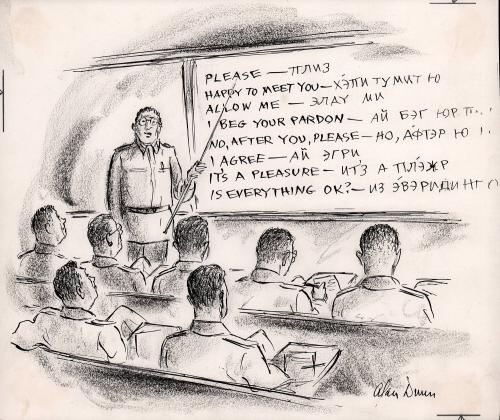 PLEASE — ПЛИЗ
HAPPY TO MEET YOU — ХЭПИ ТУ МИТ Ю
ALLOW ME — ЭЛАУ МИ
I BEG YOUR PARDON — АЙ БЭГ ЮР
NO, AFTER YOU, PLEASE — НО, АФТЭР Ю
I AGREE — АЙ ЭГРИ
IT'S A PLEASURE — ИТ'З А ПЛЭЖР
IS EVERYTHING OK? — ИЗ ЭВЭРИДИНГ
Alan Dunn